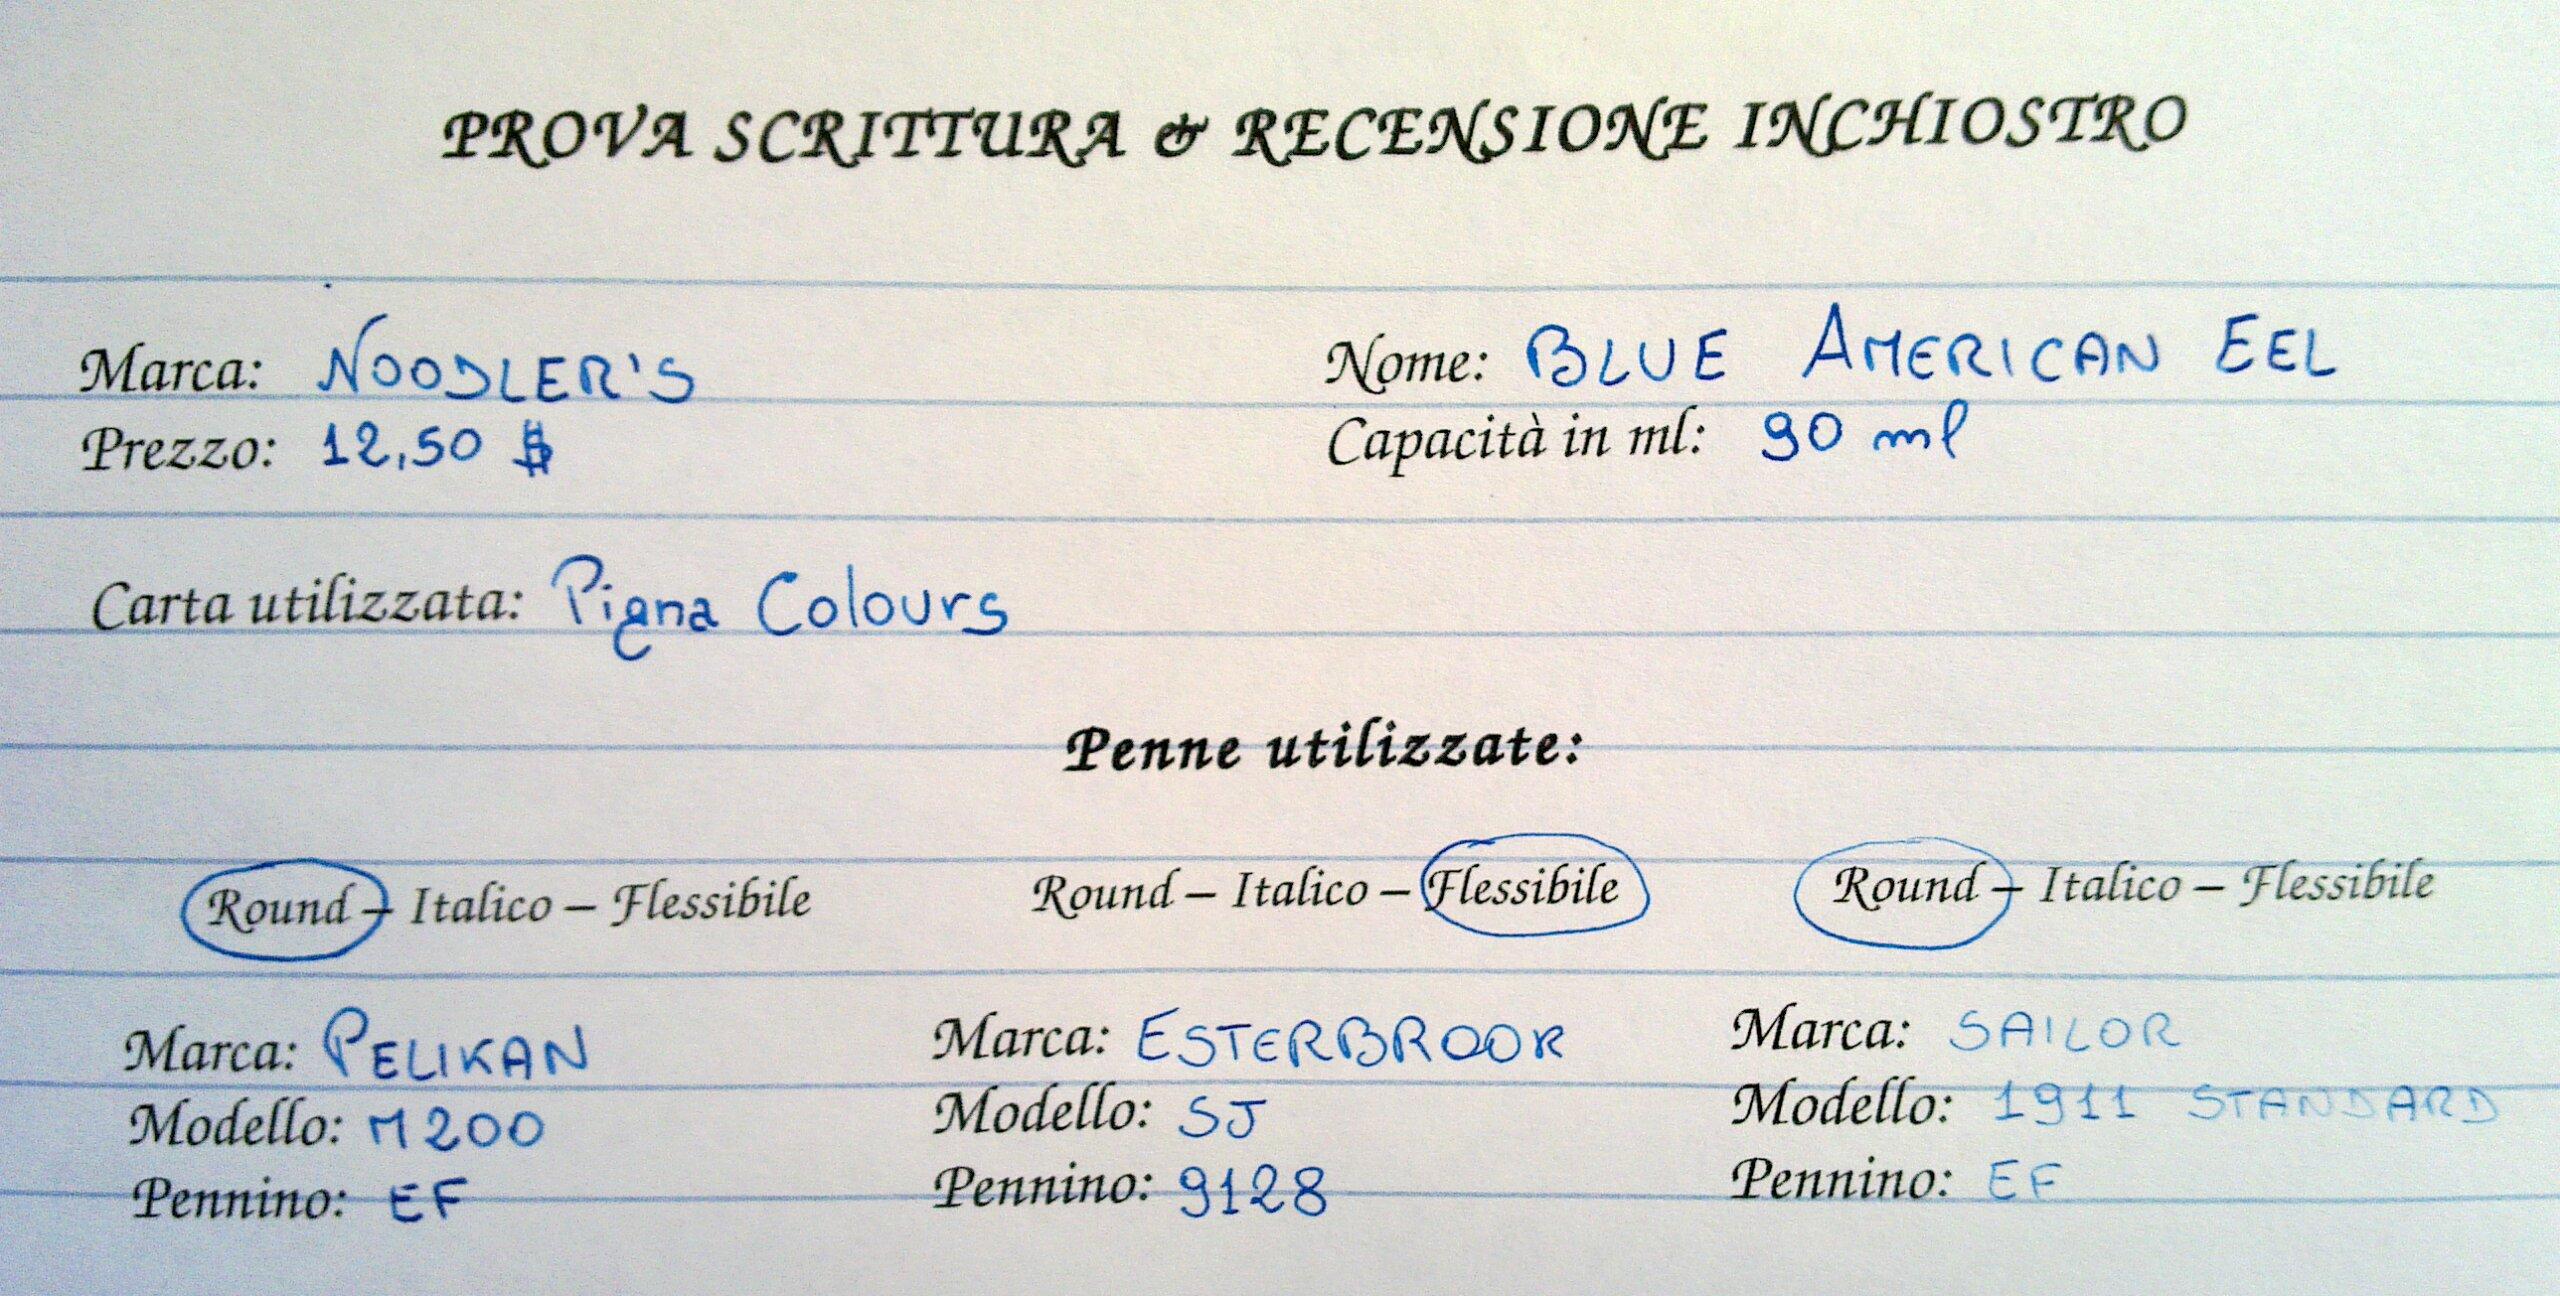 PROVA SCRITTURA & RECENSIONE INCHIOSTRO
Marca: NOODLER'S
Nome: BLUE AMERICAN EEL
Prezzo: 12,50 $
Capacità in ml: 90 ml
Carta utilizzata: Pigna Colours
Penne utilizzate:
Round – Italico – Flessibile
Round – Italico – Flessibile
Round – Italico – Flessibile
Marca: PELIKAN
Modello: M200
Pennino: EF
Marca: ESTERBROOK
Modello: SJ
Pennino: 9128
Marca: SAILOR
Modello: 1911 STANDARD
Pennino: EF